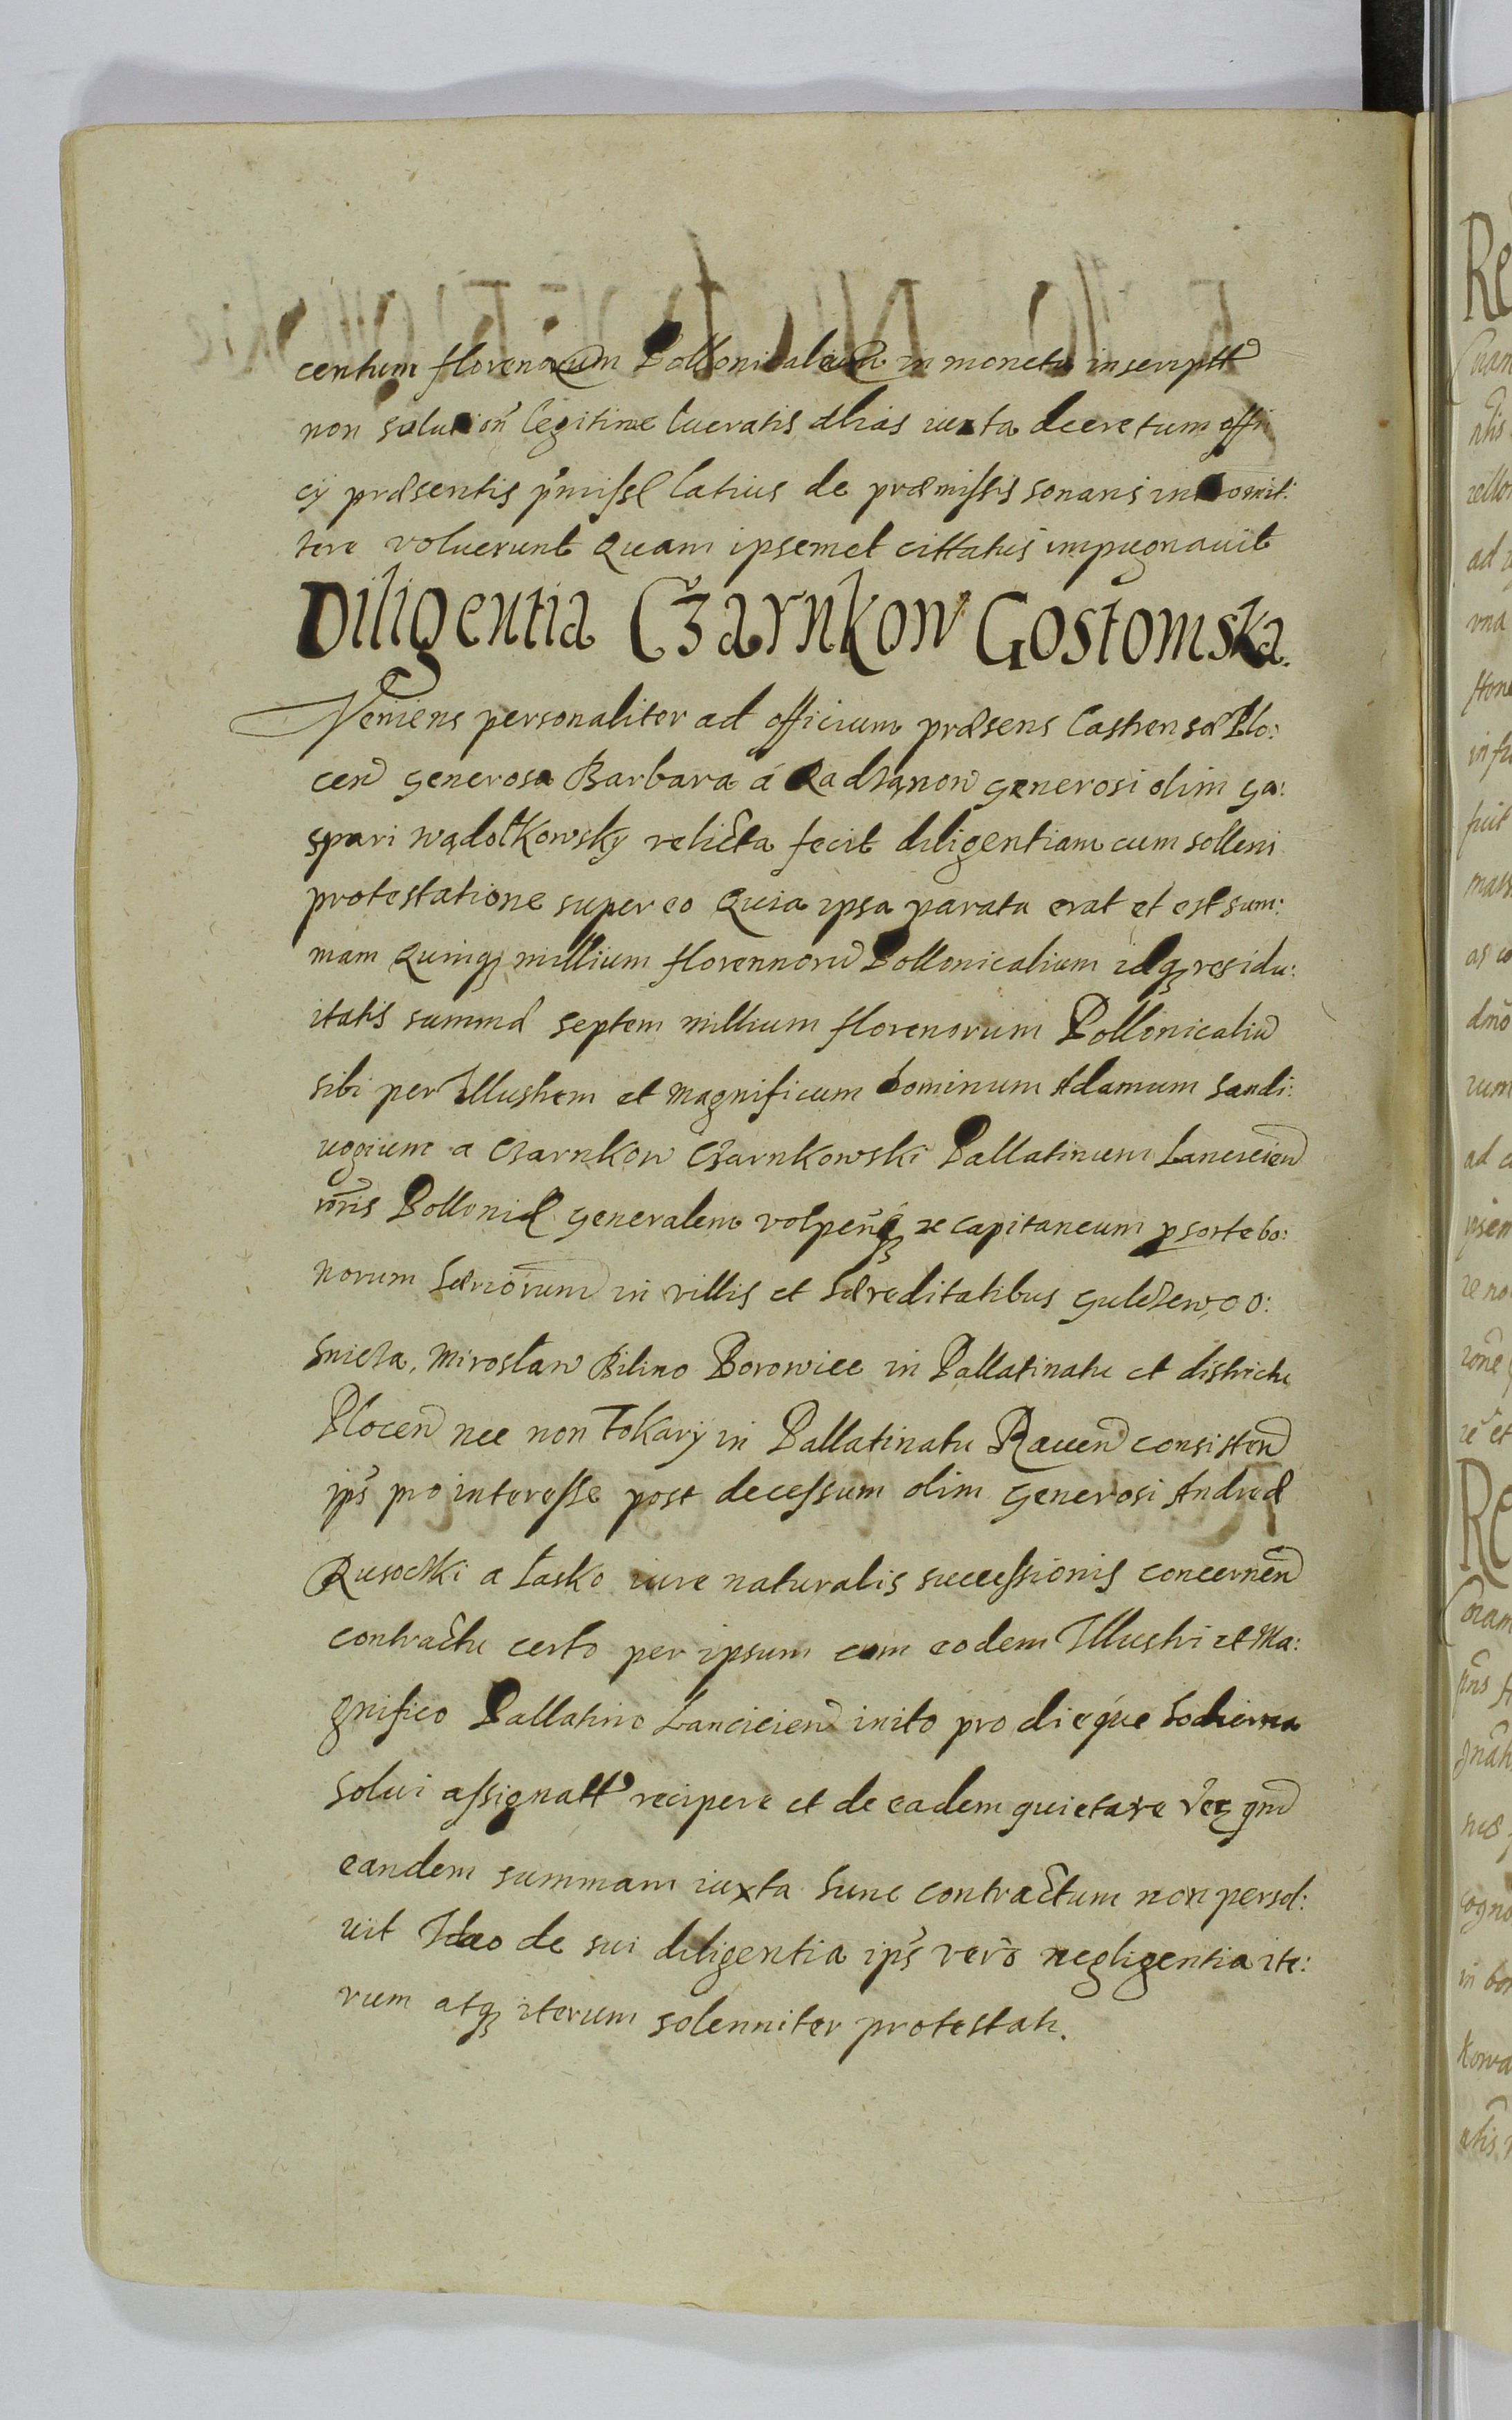 centum florenorum Pollonicalium in moneta inscriptt
non solution legitime lucratis alias iuxta decretum offi
cÿ præsentis pmissæ latius de præmissis sonans intromit:
tere voluerunt Quam ipsemet cittatus impugnauit
Diligentia Czarnkow Gostomska.
Veniens personaliter ad officium præsens Castrense Plo:
cen generosa Barbara á Radzanow generosi olim Ga:
spari Wądołkowsky relicta fecit diligentiam cum solleni
protestatione super eo Quia ipsa parata erat et est sum:
mam Quinqȝ millium florennoru Pollonicalium idqȝ residu:
itatis summæ septem millium florenorum Pollonicaliu
sibi per Illustrem et Magnificum Dominum Adamum Sandi:
uogium a Czarnkow Czarnkowski Pallatinum Lancicien
roris Polloniæ generalem volpenqȝ ze capitaneum p sorte bo:
norum hæriorum in villis et hæreditatibus Gulczewo O:
śnicza, Mirosław Bilino Borowice in Pallatinatu et districtu
Plocen nec non Tokary in Pallatinatu Rauen consisten
ips pro interesse post decessum olim generosi Andreæ
Rusoczki a Łasko iure naturalis successionis concernen
contractu certo per ipsum cum eodem Illustri et Ma:
gnifico Pallatino Lancicien inito pro dieque hodierna
solui assignatt recipere et de eadem quietare Verȝ qm
eandem summam iuxta hunc contractum non persol:
uit Ideo de sui diligentia ips vero negligentia ite:
rum atqȝ iterum solenniter protestatr.